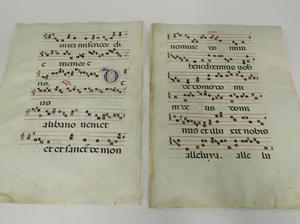 e memor e
nis.
nis
alibano uemet
et et sanct de mon
nomine do mini
benediximus uob
de domo do mi
ni de us domi
nus et illu xit nobis
alleluya. alle lu